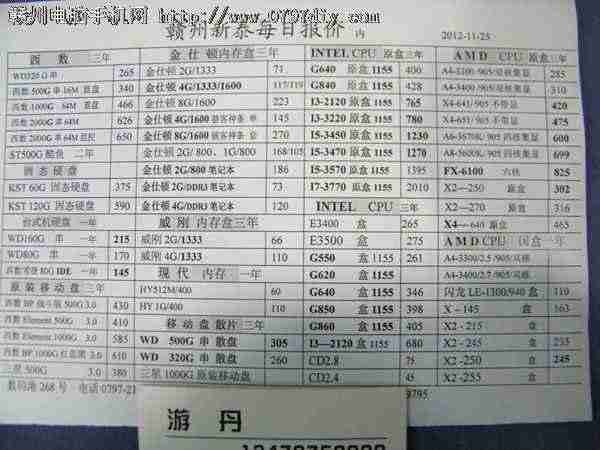 赣州电脑手机网 http://www.0797diy.com
赣州新泰每日报价 内 2012-11-25
西 数 三年
WD320G串 265
西数 500G 串 16M 蓝盘 340
西数 1000G 64M 蓝盘 466
西数 2000G 串 64M 626
西数 2000G 串 64M 650
ST500G 酷鱼 二年
固态硬盘
KST 60G 固态硬盘 375
KST 120G 固态硬盘 590
台式机硬盘 一年
WD160G 串 一年 215
WD80G 串 一年 170
西数 80G IDE 一年 145
原装移动盘 三年
500G 3.0 430
西数 Element 500G 3.0 410
西数 Element 1000G 3.0 585
西数 BP 1000G 3.0 610
三星 500G 3.0 380
数码港 268 号 电话 0797-21
金 仕 顿内存盒三年
金仕顿 2G/1333 71
金仕顿 4G/1333/1600 117/119
金仕顿 8G/1600 223
金仕顿 4G/1600 骇客神条 单 145
金仕顿 8G/1600 骇客神条 套 270
金仕顿 2G/ 800、1G/800 168/105
金仕顿 2G/800 笔记本 186
金仕顿 2G/DDR3 笔记本 73
金仕顿 4G/DDR3 笔记本 120
威 刚 内存盒三年
威刚 2G/1333 66
威刚 4G/1333 110
现 代 内存 一年
HY512M/400 60
HY 1G/400 110
移 动 盘 散片 三年
WD 500G 串 散盘 305
WD 320G 串 散盘 260
三星 1000G 原装移动盘
INTEL CPU 原盒三年
G640 原盒 1155 400
G840 原盒 1155 428
I3-2120 原盒 1155 765
I3-3220 原盒 1155 780
I5-3450 原盒 1155 1230
I5-3470 原盒 1155 1270
I5-3570 原盒 1155 1395
I7-3770 原盒 1155 2010
INTEL CPU 三年
E3400 盒 265
E3500 盒 275
G550 盒 1155 261
G620 盒 1155
G640 盒 1155 346
G850 盒 1155 398
G860 盒 1155 405
I3—2120 盒 1155 680
CD2.8 75
CD2.4 45
9795
A M D CPU 原盒三年
285
A4-3400 /905/ 310
X4-631/ 905 不带显 420
X4-641/ 905 不带显 475
600
699
FX-6100 六核 825
X2—250 原盒 302
X2—270 原盒 316
X4—640 原盒 465
A M D CPU 盒 一年
A4-3300/2.5 /905/双核
A4-3400/2.7 /905/双核
闪龙 LE-1300/940 盒 110
X2-215 盒
X2 -245 盒 235
X2 -250 盒 245
X2 -255 盒
游 丹